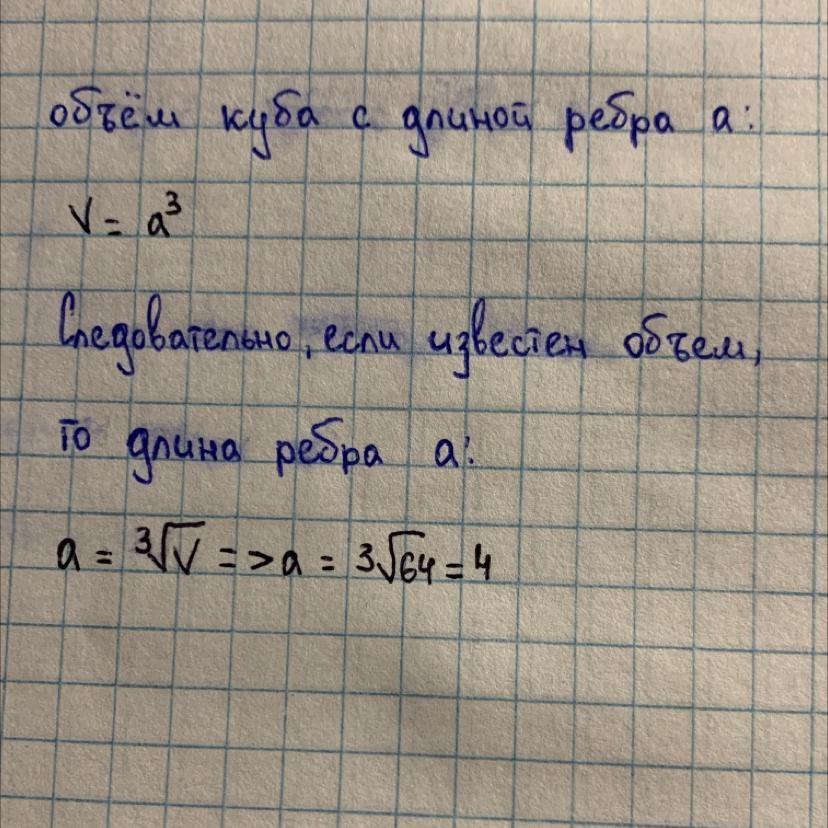 объём куба с длиной ребра a:
V = a³
Следовательно, если известен объем,
то длина ребра a:
a = ³√V => a = ³√64 = 4